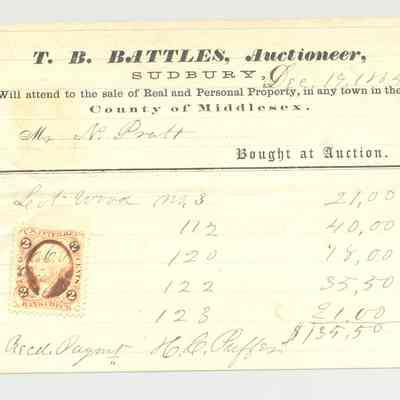 T. B. BATTLES, Auctioneer,
SUDBURY, Dec. 17, 1864
Will attend to the sale of Real and Personal Property, in any town in the
County of Middlesex.
Mr N. Pratt
Bought at Auction.
Lot Wood No. 3 21,00
112 40,00
120 18,00
122 35,50
123 21.00
$135,50
Recd. Paymt H. C.
2 2
CENTS